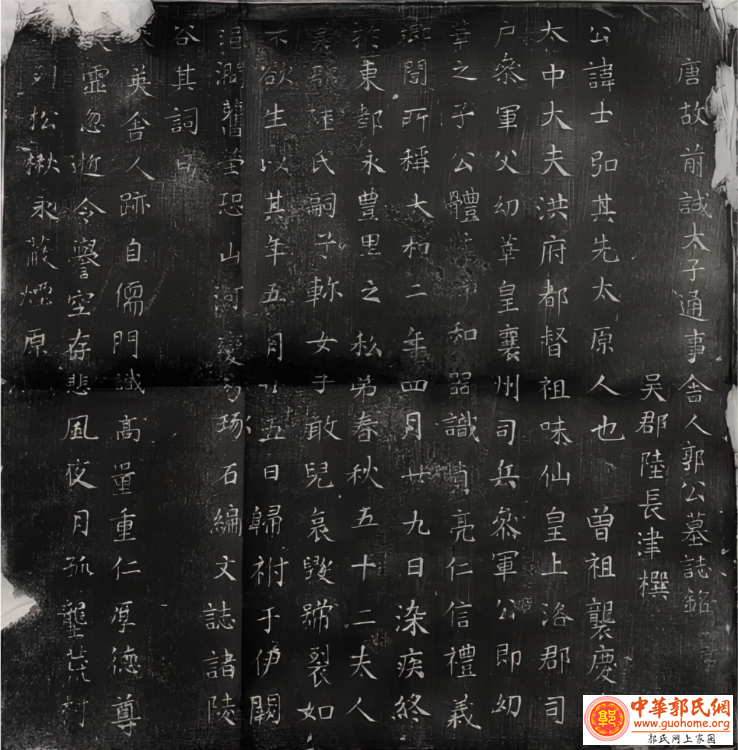 唐故前試太子通事舍人郭公墓誌銘
吴郡陸長津撰
公諱士弘其先太原人也曾祖襲慶
太中大夫洪府都督祖味仙皇上洛郡司
户叅軍父幼莘皇襄州司兵叅軍公即幼
莘之子公體和器識貞亮仁信禮義
閭所稱大和二年四月廿九日染疾終
於東都永豊里之私第春秋五十二夫人
陸氏嗣子軫女子敢兒哀毀號裂如
不欲生以其年五月廿五日歸祔于伊闕
舊塋恐山河變易琢石編文誌諸陵
谷其詞曰
英舍人跡自儒門識高量重仁厚德尊
靈忽逝令譽空存悲風夜月孤壟荒村
列松楸永蔽煙原
中華郭氏網
www.guohome.org
郭氏网上家园